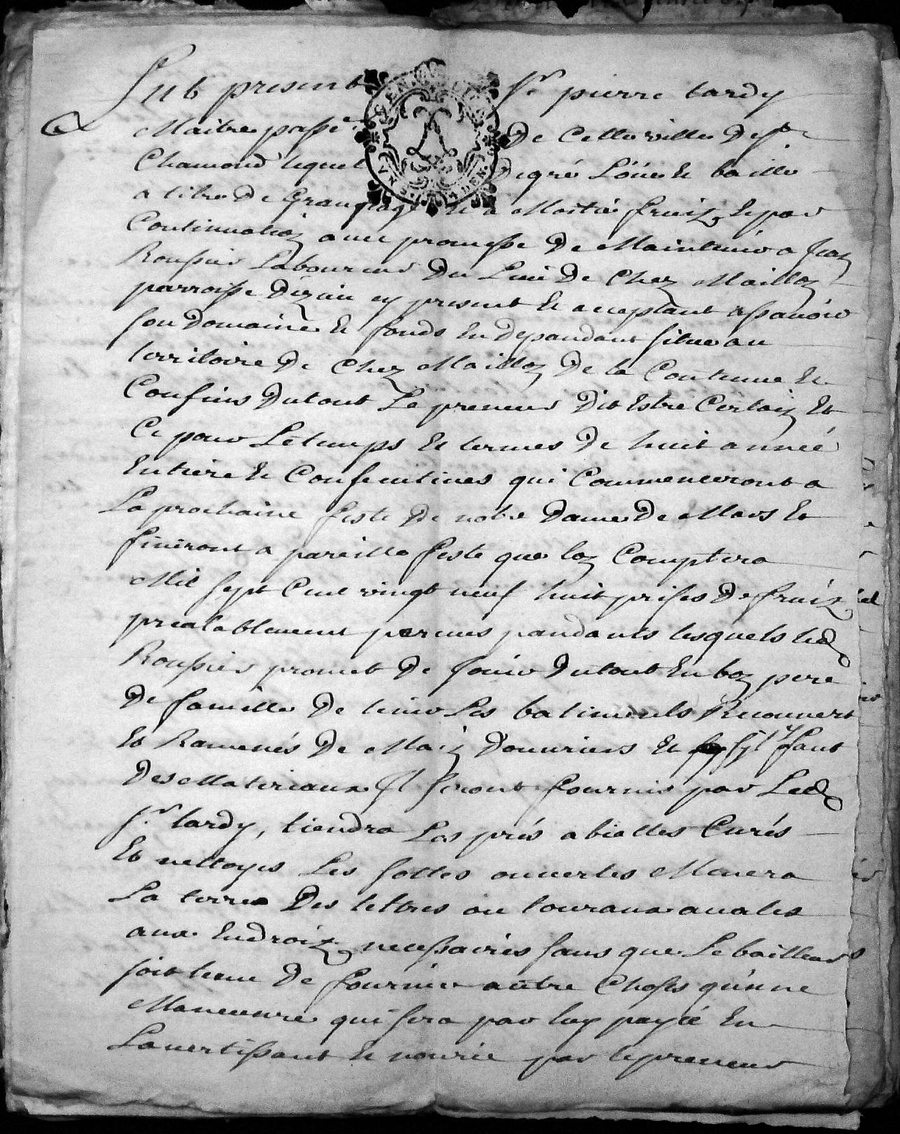 Fut present Sr pierre tardy
Maitre passe de Cette ville de st
Chamond lequel de gré Loüe et baille
a titre de Grangeage et a Moitié fruiz, et par
Continuation avec promesse de Maintenir a Jean
Roussier Laboureur du Lieu de Chez Maillon
parroisse Dizieu cy present et acceptant assavoir
son domaine et fonds en dépandant situe au
territoire de Chez Maillon de la Contenue et
Confins du tout Le preneur dit Estre Certain Et
Ce pour Le temps et termes de huit année
Entiere et Consecutives qui Commenceront a
La prochaine feste de notre dame de Mars Et
finiront a pareille feste que lon Comptera
Mil sept Cent vingt neuf huit prises de fruiz
prealablement percues pandants lesquels led
Roussier promet de jouir du tout En bon pere
de famille de tenir Les batiments Recouvert
Et Ramenés de Main d'ouvriers et sil faut
des Materiaux Il seront fournis par Led
sr tardy, tiendra Les prés a bialles Curés
Et nettoyes Les fosses ouvertes Menera
La terre des tettes ou touraux avales
aux Endroiz necessaires sans que Le bailleur
soit tenu de fournir autre Choses qu'une
Maneuvre qui sera par luy payée En
Lavertissant et nourie par le preneur